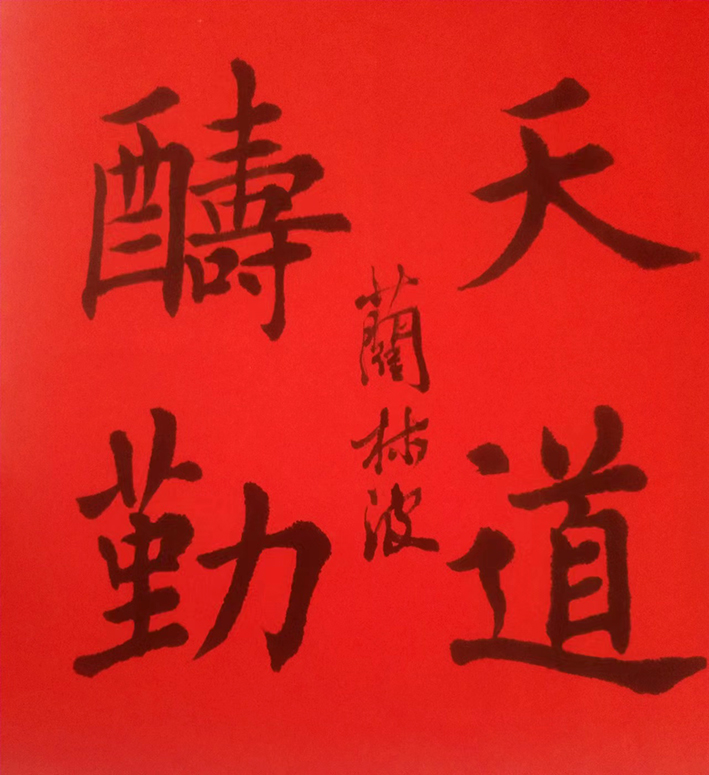 天道
醻勤
蘭林波